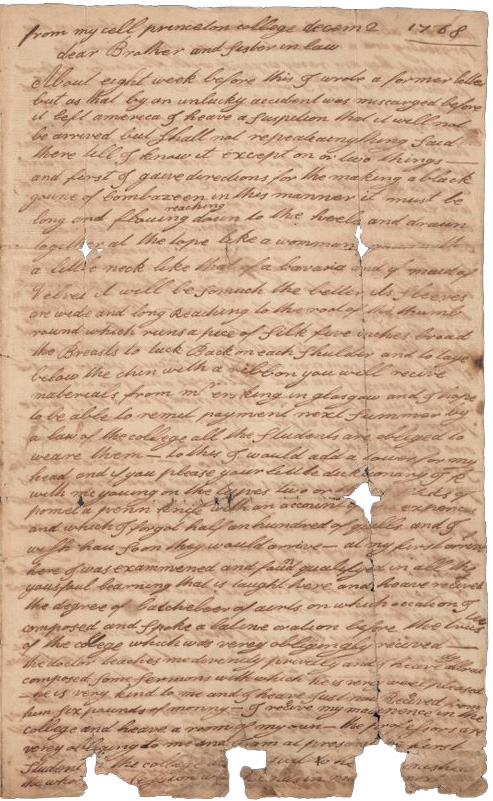 from my cell princeton college decem 2 1768
dear Brother and sister in law
About eight week before this I wrote a former letter
but as that by an unlucky accident was miscarged before
it left amereca I heave a suspetion that it well not
be arrived but shall not repeate anything said
there till I know it except on or two things
and first I gave derections for the making a black
goune of bombazeen in this manner it must be
long and flowing reaching down to the heels and drawn
together at the tope like a womman
a little neck like that of a bavaria and if maid of
Velvet it will be so much the better its sleeves
are wide and long Reaching to the root of the thumb
round which runs a pece of silk five inches broad
the Breasts to tuck Back on each shulder and to laye
below the chin with a ribbon you will recive
materials from mr en king in glasgow and I hope
to be able to remit payment next summer by
a law of the college all the students are obliged to
weare them to this I would add a tower for my
head and if you please your little dictionary of
with young on the two or
pome a penn knife with an account of expences
and which I forgot half an hundred of quills and I
wish hav soon they would arrive at my first arrive
here I was exammened and found qualifyed in all the
yousful learning that is taught here and heave recived
the degree of batcheler of aurts on which ocation I
composed and spoke a latine oration before the
of the college which was verey obligingly recived
the doctor teaches me divenity privetly and I heave allso
composed some sermons with which he is very well pleased
he is very kind to me and I heave just now Recived from
him six pounds of monny I recive my in the
college and heave a room of my own the are
verey obliging to me and I am at present the first
student in the college and to
the whole